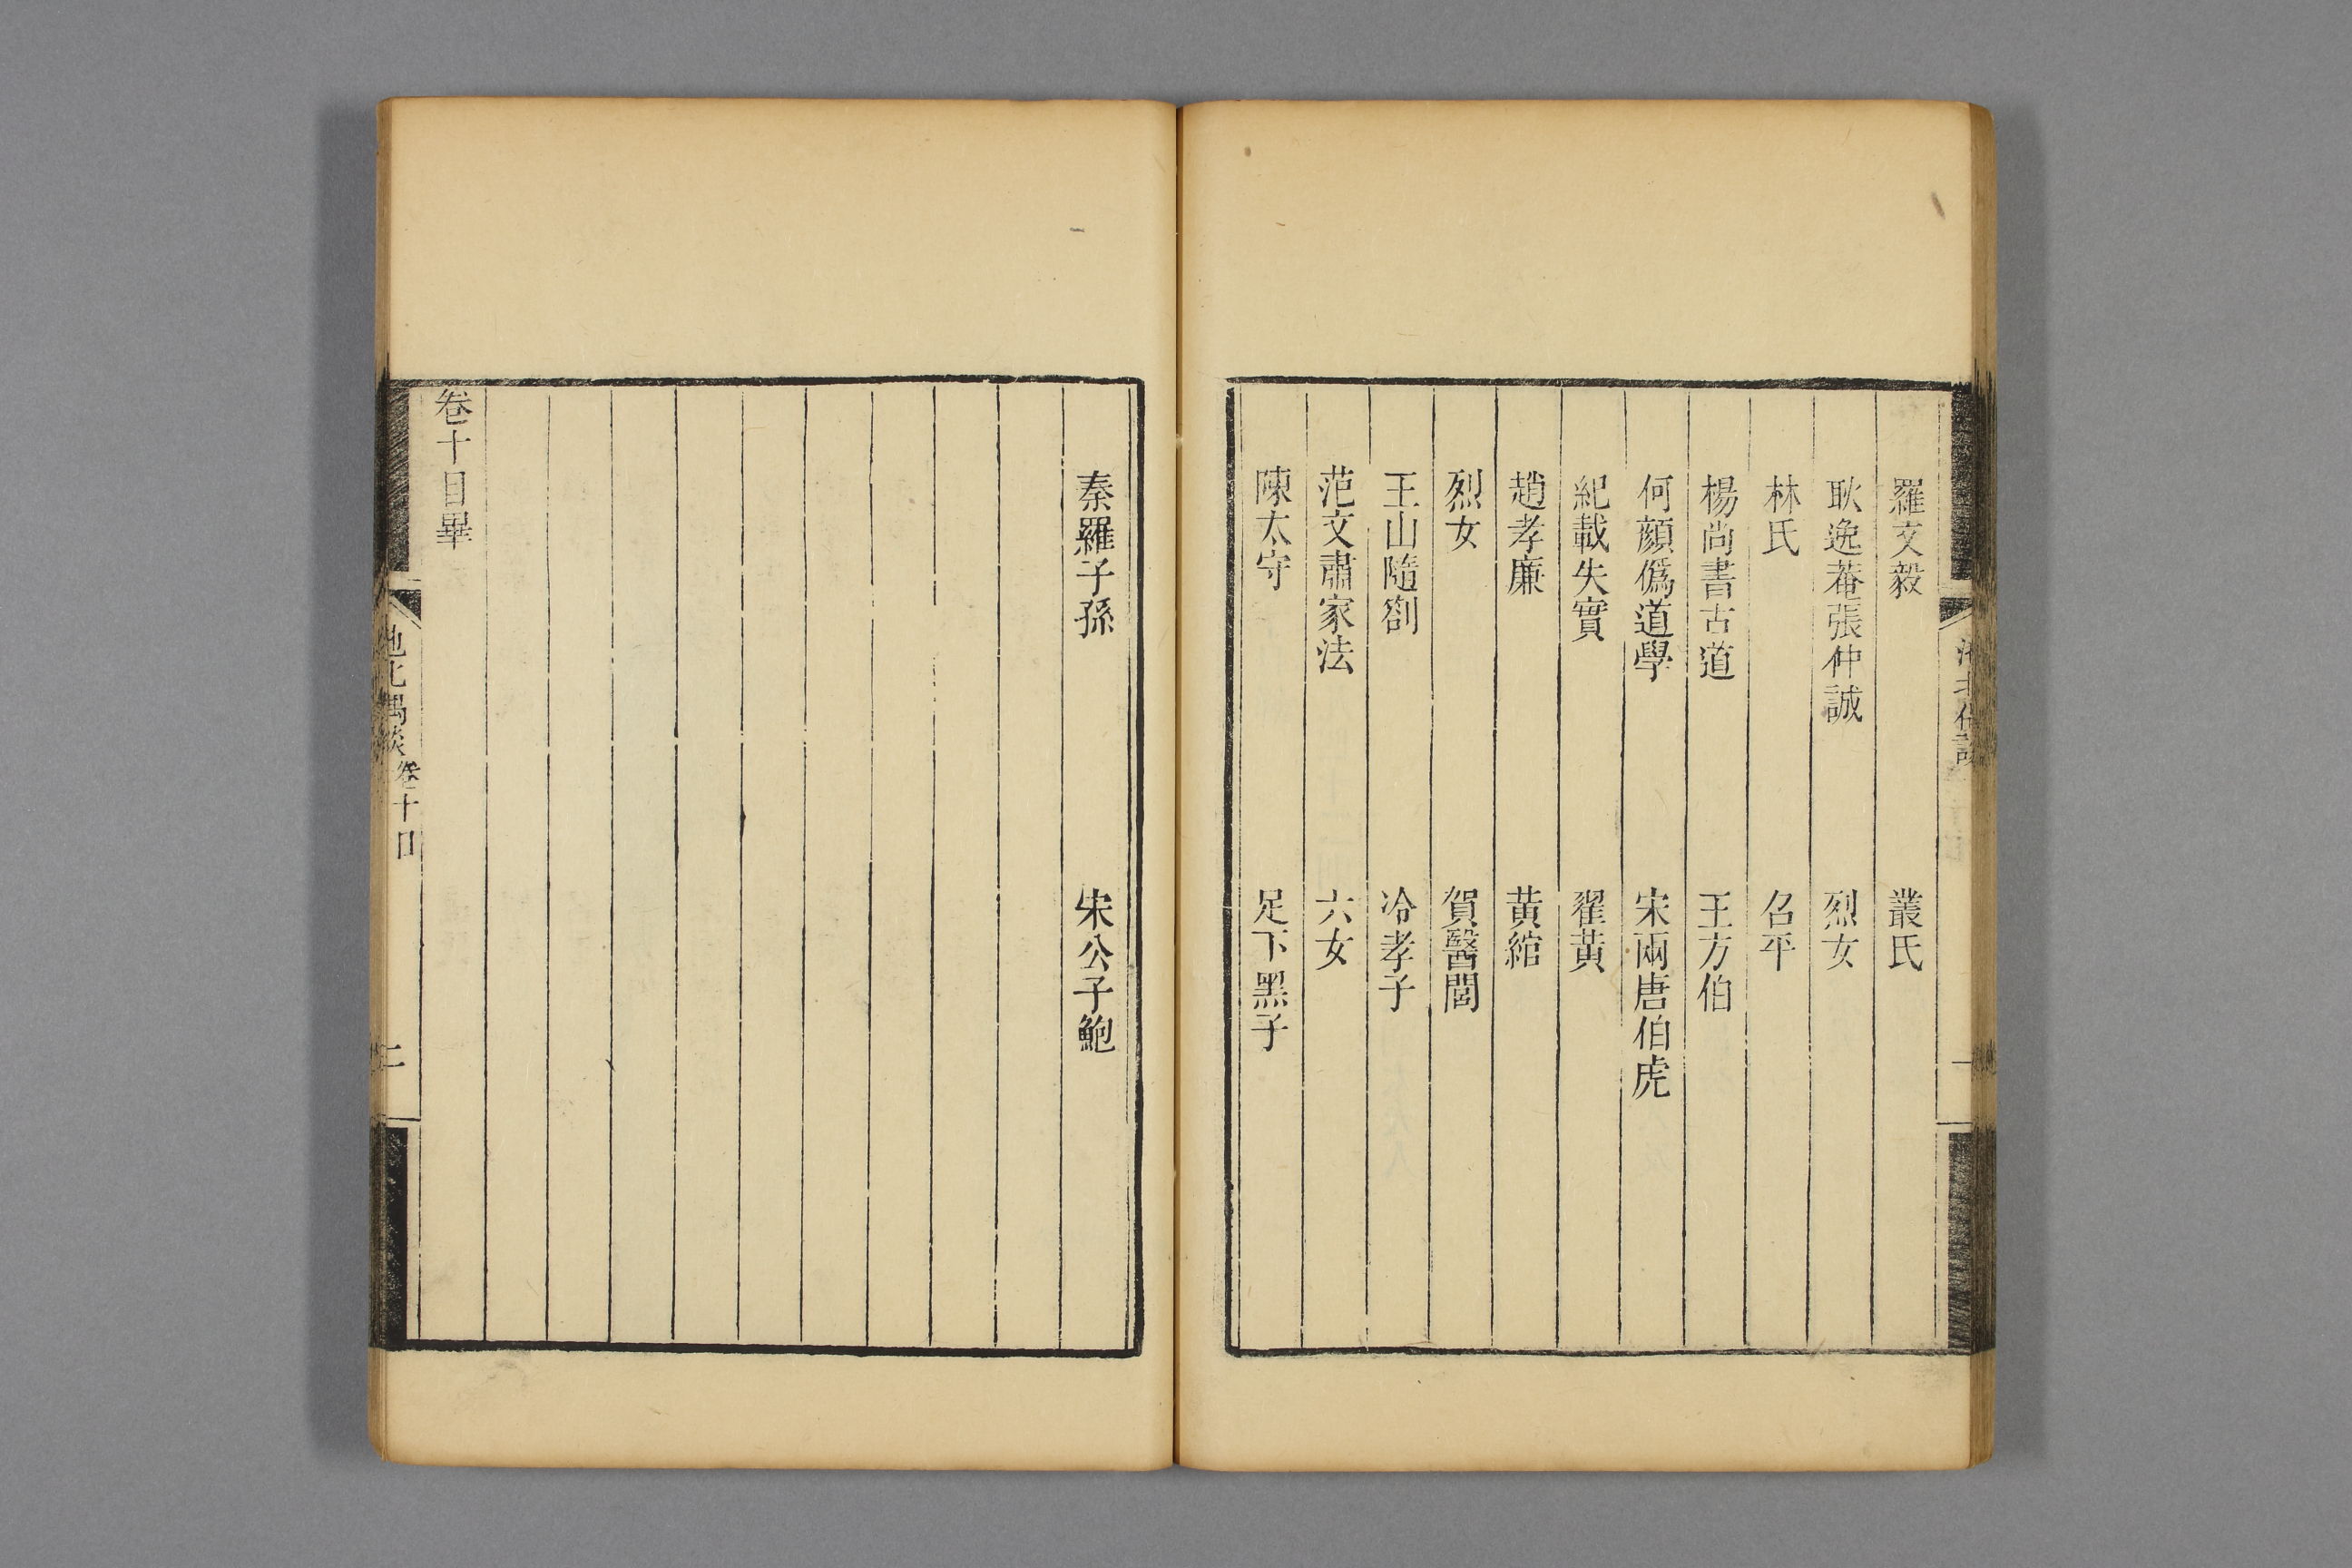 羅文毅　叢氏
耿逸菴張仲誠　烈女
林氏　召平
楊尚書古道　王方伯
何顏僞道學　宋兩唐伯虎
紀載失實　翟黃
趙孝廉　黃綰
烈女　賀醫閭
王山隨劄　冷孝子
范文肅家法　六女
陳太守　足下黑子
秦羅子孫　宋公子鮑
卷十目畢
池北偶談　卷十目　二